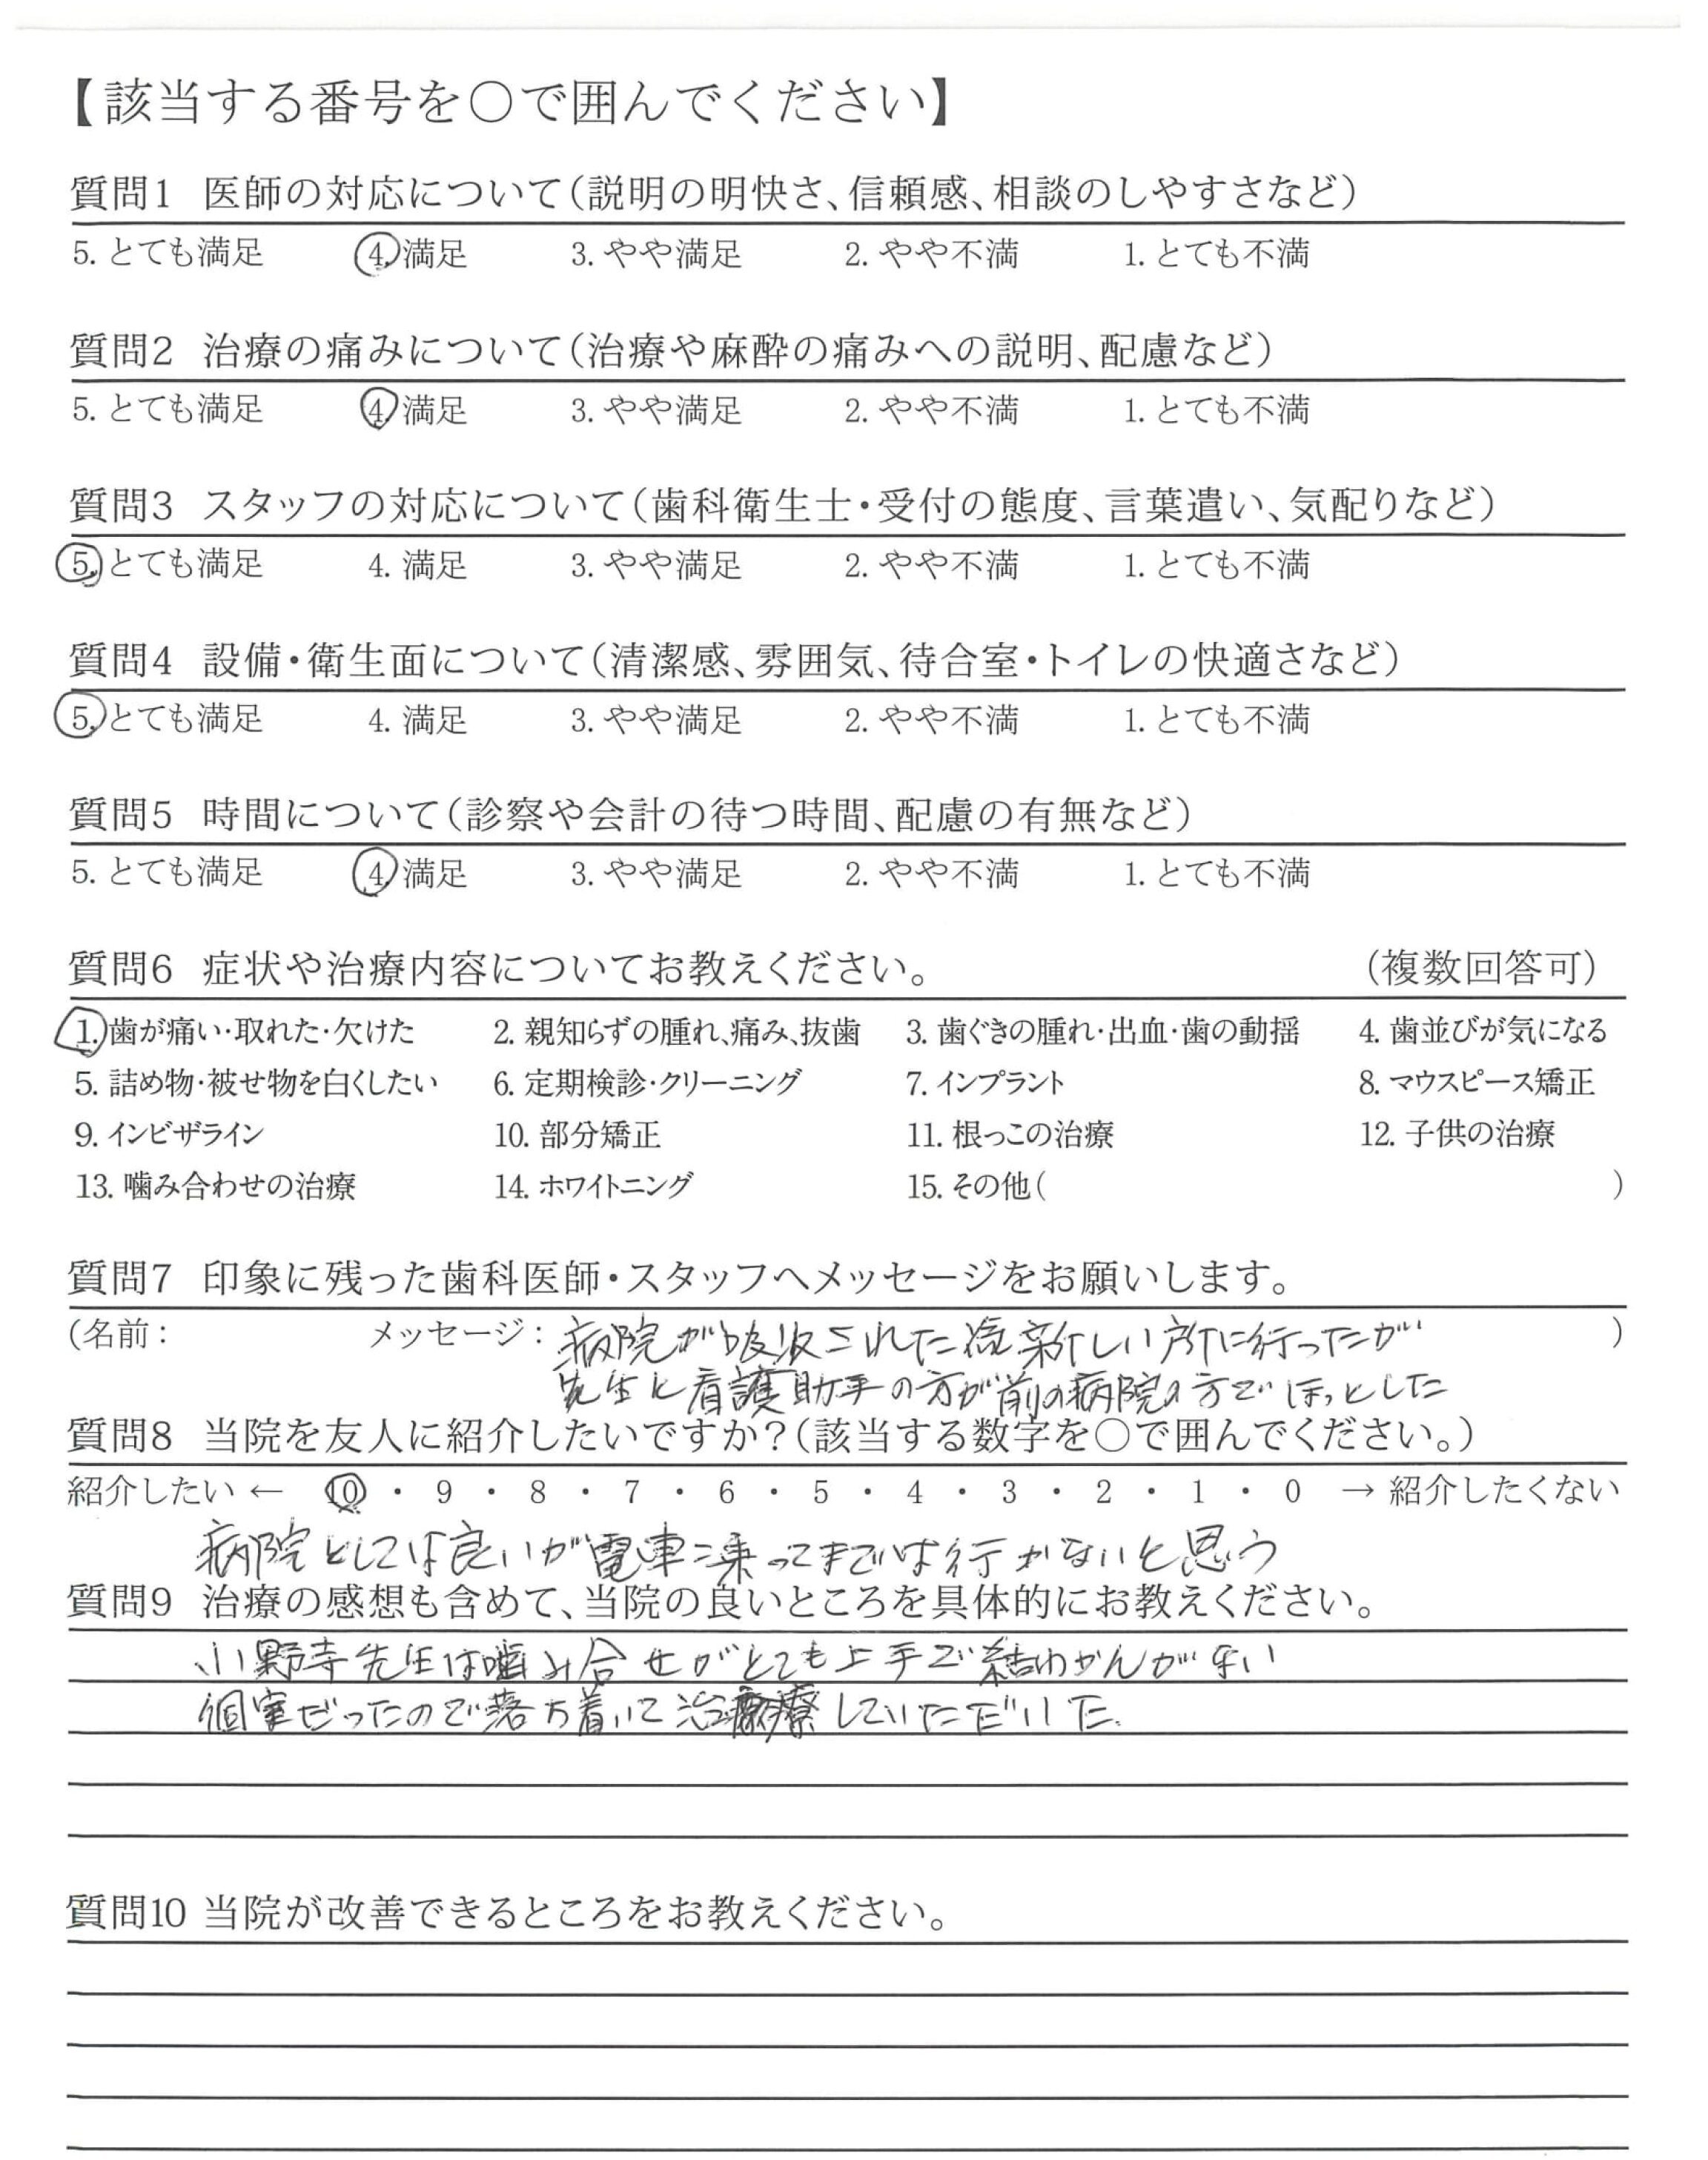 【該当する番号を○で囲んでください】
質問1 医師の対応について(説明の明快さ、信頼感、相談のしやすさなど)
5. とても満足 4. 満足 3. やや満足 2. やや不満 1. とても不満
質問2 治療の痛みについて(治療や麻酔の痛みへの説明、配慮など)
5. とても満足 4. 満足 3. やや満足 2. やや不満 1. とても不満
質問3 スタッフの対応について(歯科衛生士・受付の態度、言葉遣い、気配りなど)
5. とても満足 4. 満足 3. やや満足 2. やや不満 1. とても不満
質問4 設備・衛生面について(清潔感、雰囲気、待合室・トイレの快適さなど)
5. とても満足 4. 満足 3. やや満足 2. やや不満 1. とても不満
質問5 時間について(診察や会計の待つ時間、配慮の有無など)
5. とても満足 4. 満足 3. やや満足 2. やや不満 1. とても不満
質問6 症状や治療内容についてお教えください。 (複数回答可)
1. 歯が痛い・取れた・欠けた 2. 親知らずの腫れ、痛み、抜歯 3. 歯ぐきの腫れ・出血・歯の動揺 4. 歯並びが気になる
5. 詰め物・被せ物を白くしたい 6. 定期検診・クリーニング 7. インプラント 8. マウスピース矯正
9. インビザライン 10. 部分矯正 11. 根っこの治療 12. 子供の治療
13. 噛み合わせの治療 14. ホワイトニング 15. その他( )
質問7 印象に残った歯科医師・スタッフへメッセージをお願いします。
(名前: メッセージ: 病院が吸収された為新しい所に行ったが )
先生と看護助手の方が前の病院の方でほっとした
質問8 当院を友人に紹介したいですか?(該当する数字を○で囲んでください。)
紹介したい ← 10 ・ 9 ・ 8 ・ 7 ・ 6 ・ 5 ・ 4 ・ 3 ・ 2 ・ 1 ・ 0 → 紹介したくない
病院としては良いが電車に乗ってまでは行かないと思う
質問9 治療の感想も含めて、当院の良いところを具体的にお教えください。
小野寺先生は噛み合せがとても上手で いわかんがない
個室だったので落ち着いて治療していただいた.
質問10 当院が改善できるところをお教えください。